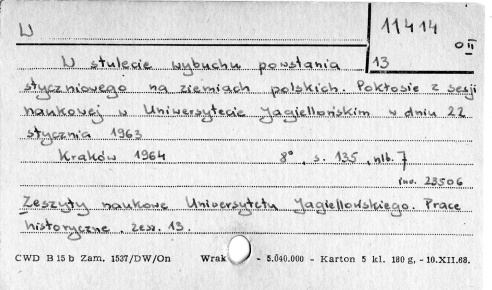 W
11414
0 II
13
W stulecie wybuchu powstania
styczniowego na ziemiach polskich. Pokłosie z sesji
naukowej w Uniwersytecie Jagiellońskim w dniu 22
stycznia 1963
Kraków 1964 8°, s. 135, nlb. 7
inw. 23506
Zeszyty naukowe Uniwersytetu Jagiellońskiego. Prace
historyczne, zesz. 13.
CWD B 15 b Zam. 1537/DW/On Wrak - 5.040.000 - Karton 5 kl. 180 g, - 10.XII.68.